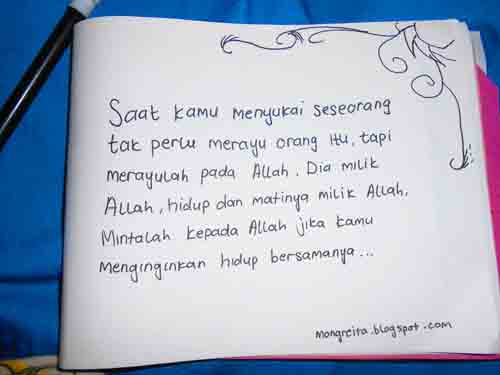 Saat kamu menyukai seseorang
tak perlu merayu orang itu, tapi
merayulah pada Allah. Dia milik
Allah, hidup dan matinya milik Allah.
Mintalah kepada Allah jika kamu
menginginkan hidup bersamanya...
mongreita.blogspot.com